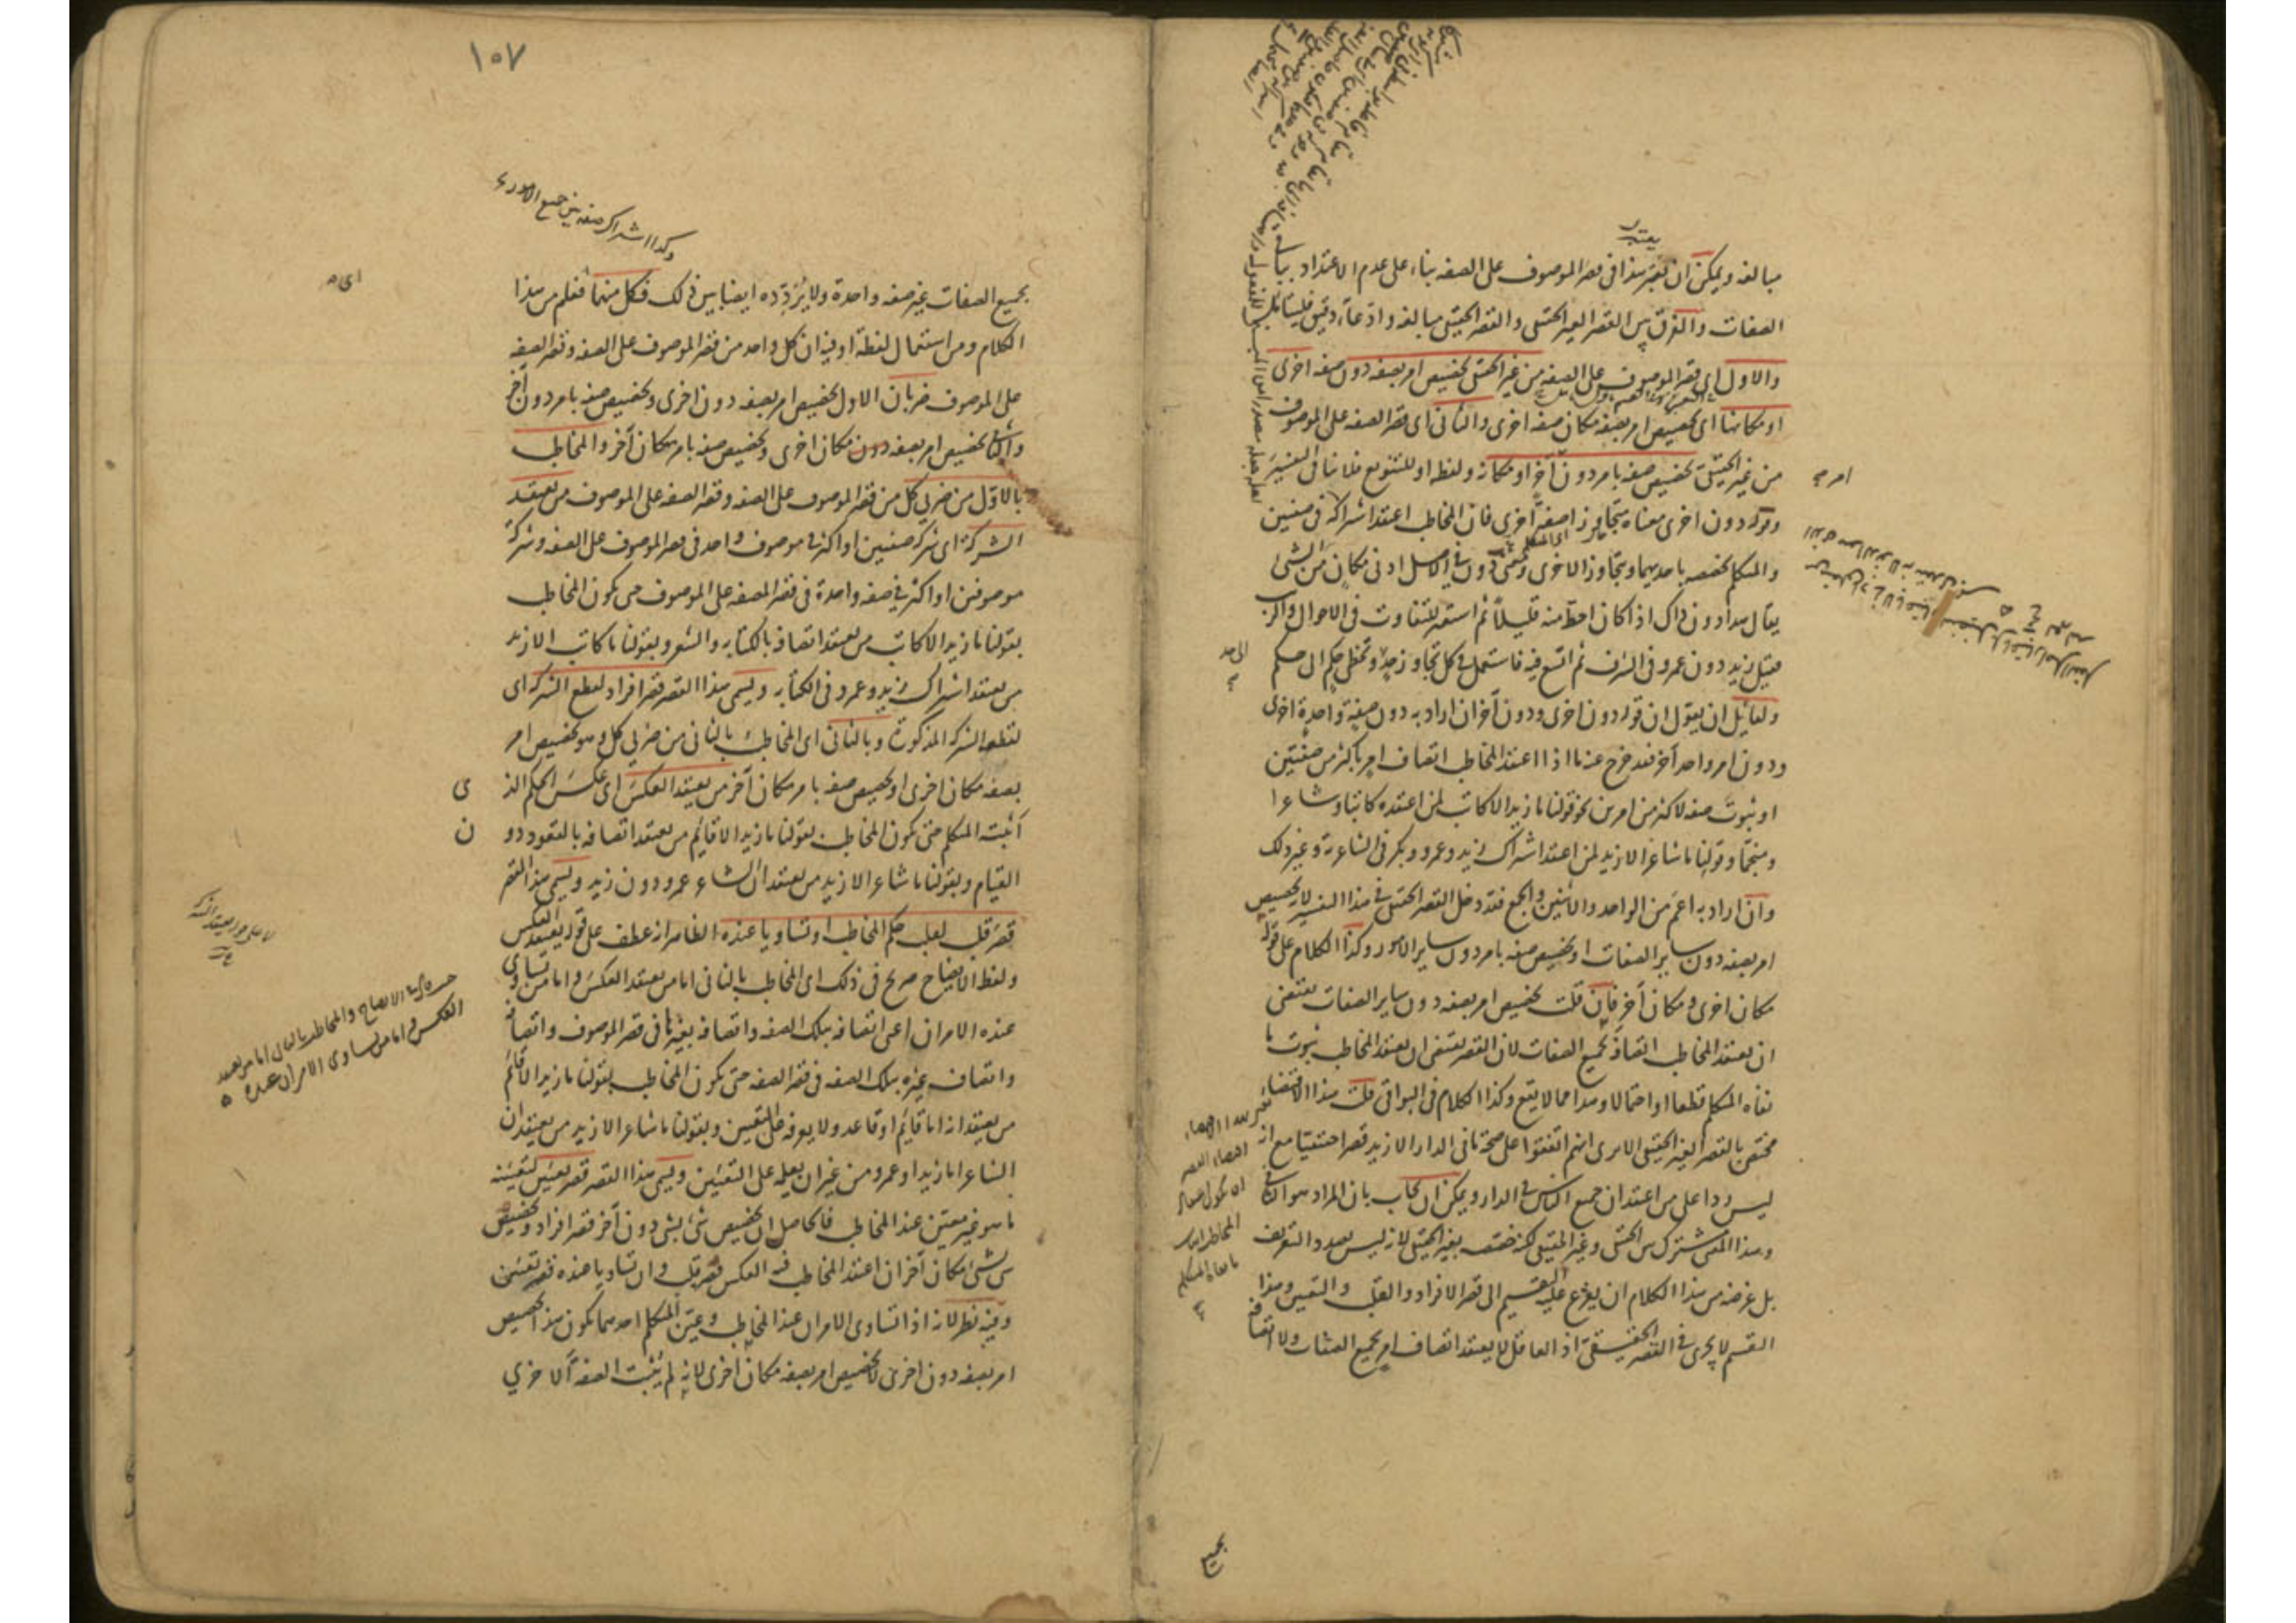 يعتبر
مبالغه ويمكن ان يعتبر هذا فى قصر الموصوف على الصفه بناء على عدم الاعتداد بباقى
الصفات والفرق بين القصر الغير الحقيقى والقصر الحقيقى مبالغه وادعاء دقيق فليتأمل
والاول اى قصر الموصوف على الصفه من غير الحقيقى تخصيص امر بصفه دون صفه اخرى
او مكانها اى تخصيص امر بصفه مكان صفه اخرى والثانى اى قصر الصفه على الموصوف
من غير الحقيقى تخصيص صفه بامر دون آخر او مكانه ولفظ او للتنويع فلا ينافى التفسير
وقوله دون اخرى معناه متجاوزا صفة اخرى فان المخاطب اعتقد اشتراكه فى صفتين
والمتكلم يخصصه باحديهما ويتجاوز الاخرى ومعنى دون فى الاصل ادنى مكان من الشئ
يقال هذا دون ذاك اذا كان احط منه قليلا ثم استعير للتفاوت فى الاحوال والرتب
فقيل زيد دون عمرو فى الشرف ثم اتسع فيه فاستعمل فى كل تجاوز حد وتخطى حكم الى حكم
ولقائل ان يقول ان قوله دون اخرى ودون آخر ان اراد به دون صفة واحدة اخرى
ودون امر واحد آخر فقد خرج عنه ما اذا اعتقد المخاطب اتصاف امر باكثر من صفتين
او ثبوت صفه لاكثر من امرين نحو قولنا ما زيد الا كاتب لمن اعتقده كاتبا وشاعرا
ومنجما وقولنا ما شاعر الا زيد لمن اعتقد اشتراك زيد وعمرو وبكر فى الشاعرية وغير ذلك
وان اراد به اعم من الواحد والاثنين والجمع فقد دخل القصر الحقيقى فى هذا التفسير لانه تخصيص
امر بصفه دون ساير الصفات او تخصيص صفه بامر دون ساير الامور وكذا الكلام على قوله
مكان اخرى ومكان آخر فان قلت تخصيص امر بصفه دون ساير الصفات يقتضى
ان يعتقد المخاطب اتصافه بجميع الصفات لان القصر يقتضى ان يعتقد المخاطب ثبوت ما
نفاه المتكلم قطعا او احتمالا وهذا مما لا يقع وكذا الكلام فى البواقى قلت هذا الاقتضاء
مختص بالقصر الغير الحقيقى الا يرى انهم اتفقوا على صحة ما فى الدار الا زيد قصرا حقيقيا مع انه
ليس ردا على من اعتقد ان جميع الناس فى الدار ويمكن ان يجاب بان المراد هو الثانى
وهذا المعنى مشترك بين الحقيقى وغير الحقيقى لكنه خصصه بغير الحقيقى لانه ليس بصدد التعريف
بل غرضه من هذا الكلام ان يفرع عليه التقسيم الى قصر الافراد والقلب والتعيين وهذا
التقسيم لا يجرى فى القصر الحقيقى اذ العاقل لا يعتقد اتصاف امر بجميع الصفات ولا اتصافه
بجميع
١٠٧
وكذا اشتراك صفه بين جميع الامور
بجميع الصفات غير صفه واحدة ولا يردده ايضا بين ذلك فكل منهما فعلم من هذا
الكلام ومن استعمال لفظة او فيه ان كل واحد من قصر الموصوف على الصفه وقصر الصفه
على الموصوف ضربان الاول تخصيص امر بصفه دون اخرى وتخصيص صفه بامر دون آخر
والثانى تخصيص امر بصفه مكان اخرى وتخصيص صفه بامر مكان آخر والمخاطب
بالاول من ضربى كل من قصر الموصوف على الصفه وقصر الصفه على الموصوف من يعتقد
الشركة اى شركة صفتين او اكثر فى موصوف واحد فى قصر الموصوف على الصفه وشركة
موصوفين او اكثر فى صفه واحدة فى قصر الصفه على الموصوف حتى يكون المخاطب
بقولنا ما زيد الا كاتب من يعتقد اتصافه بالكتابه والشعر وبقولنا ما كاتب الا زيد
من يعتقد اشتراك زيد وعمرو فى الكتابه ويسمى هذا القصر قصر افراد لقطع الشركه اى
لقطعه الشركه المذكورة وبالثانى اى المخاطب بالثانى من ضربى كل وهو تخصيص امر
بصفه مكان اخرى او تخصيص صفه بامر مكان آخر من يعتقد العكس اى عكس الحكم الذى
اثبته المتكلم حتى يكون المخاطب بقولنا ما زيد الا قائم من يعتقد اتصافه بالقعود دون
القيام وبقولنا ما شاعر الا زيد من يعتقد ان الشاعر عمرو دون زيد ويسمى هذا القصر
قصر قلب لقلب حكم المخاطب او تساويا عنده الظاهر انه عطف على قوله يعتقد العكس
ولفظ الايضاح صريح فى ذلك اى المخاطب بالثانى اما من يعتقد العكس واما من تساوى
عنده الامران اعنى اتصافه بتلك الصفه واتصافه بغيرها فى قصر الموصوف واتصافه
واتصاف غيره بتلك الصفه فى قصر الصفه حتى يكون المخاطب بقولنا ما زيد الا قائم
من يعتقد انه اما قائم او قاعد ولا يعرفه على التعيين وبقولنا ما شاعر الا زيد من يعتقد ان
الشاعر اما زيد او عمرو من غير ان يعلمه على التعيين ويسمى هذا القصر قصر تعيين لتعيينه
ما هو غير معين عند المخاطب فالحاصل ان تخصيص شئ بشئ دون آخر قصر افراد وتخصيص
شئ بشئ مكان آخر ان اعتقد المخاطب فيه العكس قصر قلب وان تساويا عنده قصر تعيين
وفيه نظر لانه اذا تساوى الامران عند المخاطب وعين المتكلم احدهما يكون هذا تخصيص
امر بصفه دون اخرى لا تخصيص امر بصفه مكان اخرى لانه لم يثبت الصفه الاخرى